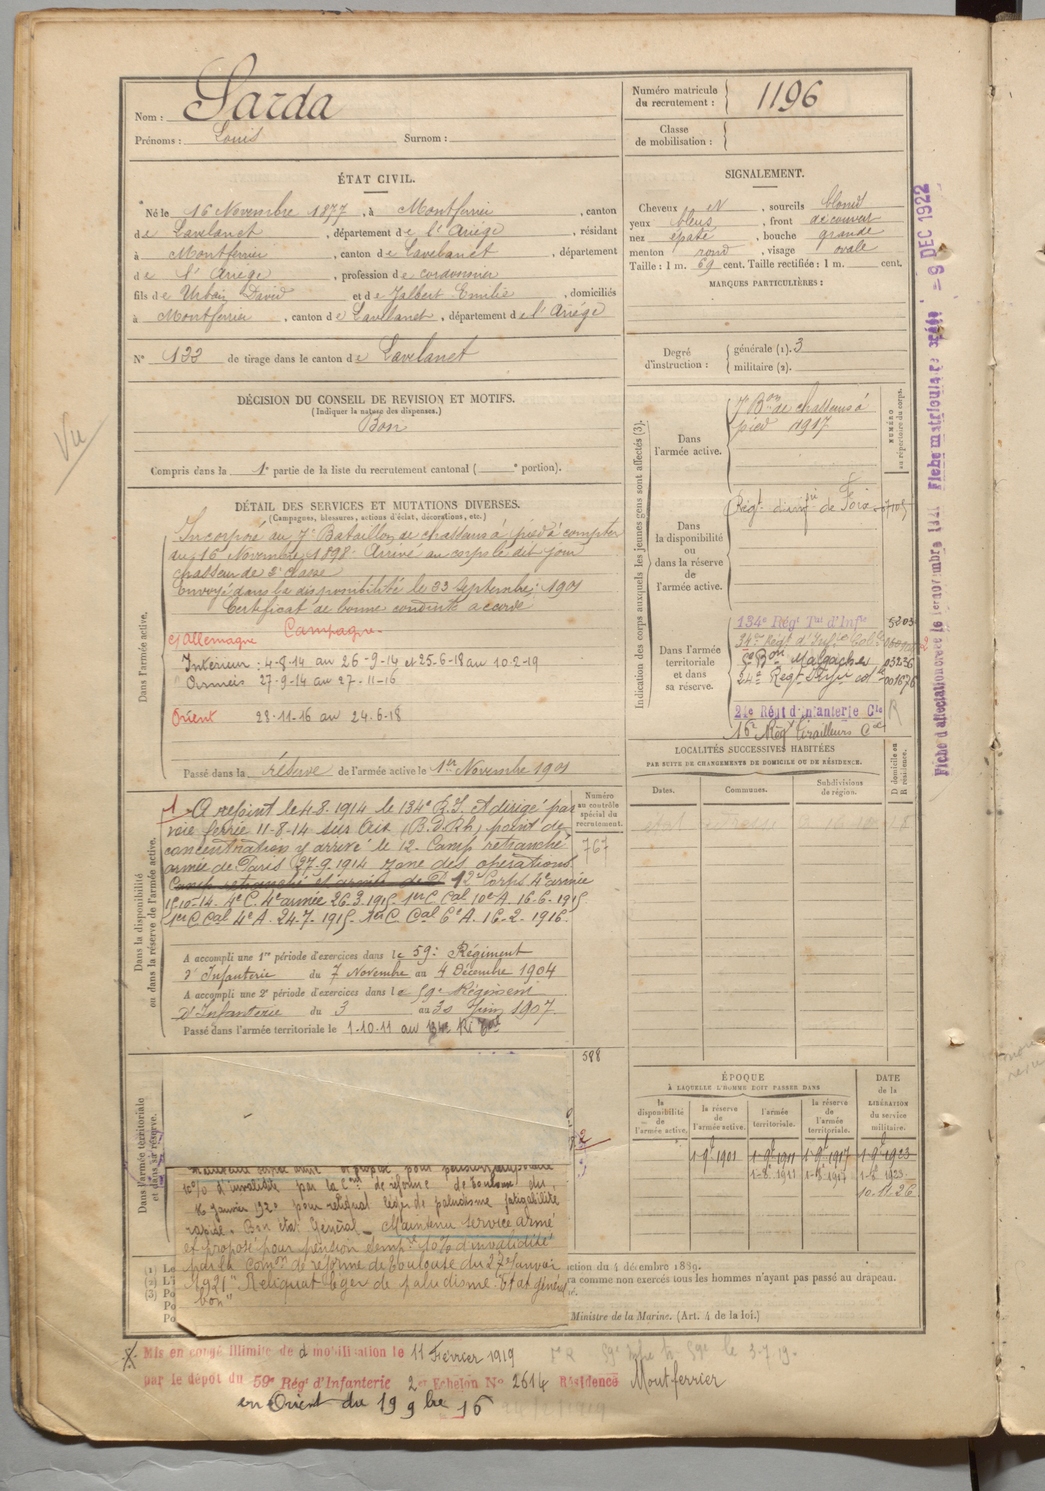 Nom : Sarda
Prénoms : Louis Surnom :
Numéro matricule du recrutement : 1196
Classe de mobilisation :
ÉTAT CIVIL.
Né le 16 Novembre 1877, à Montferrier, canton
de Lavelanet, département de l'Ariège, résidant
à Montferrier, canton de Lavelanet, département
de l'Ariège, profession de cordonnier
fils de Urbain David et de Jalbert Emilie, domiciliés
à Montferrier, canton de Lavelanet, département de l'Ariège
N° 133 de tirage dans le canton de Lavelanet
SIGNALEMENT.
Cheveux N, sourcils blond
yeux bleus, front découvert
nez épaté, bouche grande
menton rond, visage ovale
Taille : 1 m. 69 cent. Taille rectifiée : 1 m. cent.
MARQUES PARTICULIÈRES :
Degré d'instruction : générale (1). 3
militaire (2).
DÉCISION DU CONSEIL DE REVISION ET MOTIFS.
(Indiquer la nature des dispenses.)
Bon
Compris dans la 1e partie de la liste du recrutement cantonal ( e portion).
Vu
DÉTAIL DES SERVICES ET MUTATIONS DIVERSES.
(Campagnes, blessures, actions d'éclat, décorations, etc.)
Dans l'armée active.
Incorporé au 7e Bataillon de chasseurs à pied à compter
du 16 Novembre 1898. Arrivé au corps le dit jour
chasseur de 2e classe
Envoyé dans la disponibilité le 23 Septembre 1901
Certificat de bonne conduite accordé
c/ Allemagne Campagne
Intérieur : 4-8-14 au 26-9-14 et 25-6-18 au 10-2-19
Armées 27-9-14 au 27-11-16
Orient 28-11-16 au 24-6-18
Passé dans la réserve de l'armée active le 1er Novembre 1901
Dans la disponibilité ou dans la réserve de l'armée active.
A rejoint le 4-8-1914 le 134e R.I. et dirigé par
voie ferrée 11-8-14 sur Aix (B.D.Rh) point de
concentration y arrivé le 12- Camp retranché
armée de Paris 27-9-1914 zone des opérations
Camp retranché et armée de P. 12e Corps 4e armée
15-10-14. 4e C. 4e armée 26-3-1915 1er C. Cal 10e A. 16-6-1915
1er C Cal 4e A. 24-7-1915- 1er C. Cal 6e A. 16-2-1916
A accompli une 1re période d'exercices dans le 59e Régiment
d'Infanterie du 7 Novembre au 4 Décembre 1904
A accompli une 2e période d'exercices dans le 59e Régiment
d'Infanterie du 3 au 30 Juin 1907
Passé dans l'armée territoriale le 1-10-11 au 134e Ri Tal
Numéro au contrôle spécial du recrutement.
767
588
Indication des corps auxquels les jeunes gens sont affectés (3).
Dans l'armée active.
7e Bon de chasseurs à
pied 1917
NUMÉRO au répertoire du corps.
Dans la disponibilité ou dans la réserve de l'armée active.
Régt d'infrie de Foix
Dans l'armée territoriale et dans sa réserve.
134e Régt Tal d'Infie 5203
34me Régt d'Infie Colle
Bon Malgaches 03236
24e Régt d'Infie col
24e Régt d'Infanterie Cle R
16e Régt Tirailleurs Cx
LOCALITÉS SUCCESSIVES HABITÉES
PAR SUITE DE CHANGEMENTS DE DOMICILE OU DE RÉSIDENCE.
Dates. Communes. Subdivisions de région. D domicile ou R résidence.
ÉPOQUE
À LAQUELLE L'HOMME DOIT PASSER DANS
DATE de la LIBÉRATION du service militaire.
la disponibilité de l'armée active. la réserve de l'armée active. l'armée territoriale. la réserve de l'armée territoriale.
1-9bre 1901 1-9bre 1911 1-9bre 1917 1-9bre 1923
10.11.26
Dans l'armée territoriale et dans sa réserve.
10% d'invalidité par la Con de réforme de Toulouse du
16 Janvier 1920 pour reliquat léger de paludisme fatigabilité
rapide. Bon état Général. Maintenu service armé
et proposé pour pension temp. 10% d'invalidité
par la comon de réforme de Toulouse du 27 Janvier
1921 "Reliquat léger de paludisme. Etat général
bon"
ction du 4 décembre 1889.
ra comme non exercés tous les hommes n'ayant pas passé au drapeau.
Ministre de la Marine. (Art. 4 de la loi.)
Mis en congé illimité de démobilisation le 11 Février 1919
par le dépôt du 59e Régt d'Infanterie 2er Echelon No 2614 Résidence Montferrier
en Orient du 19 9bre 16
Fiche d'affectation créée le 1er novembre 1921 Fiche matriculaire créée - 9 DEC 1922